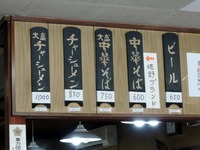 大盛 チャーシューメン 1000
チャーシューメン 850
大盛 中華そば 750
中華そば 600
佐野ブランド
ビール 650